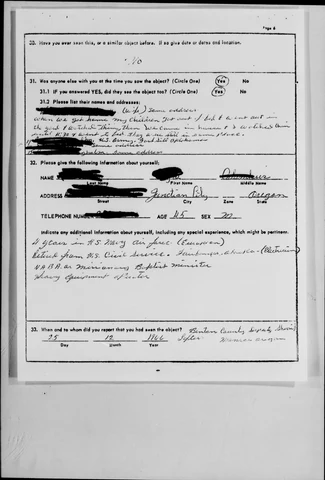 Page 6
30. Have you ever seen this, or a similar object before. If so give date or dates and location.
No
31. Was anyone else with you at the time you saw the object? (Circle One) Yes No
31.1 If you answered YES, did they see the object too? (Circle One) Yes No
31.2 Please list their names and addresses:
(wife) Same address
when we got home my children got out I but I went out in
the yard I watched them, then we came in house & watched
until and went to bed they are still in same place.
U.S. Army, Fort Sill Oklahoma
same address
same address
32. Please give the following information about yourself:
NAME Columbus
Last Name First Name Middle Name
ADDRESS Junction City Oregon
Street City State
TELEPHONE NUMBER AGE 45 SEX M
Indicate any additional information about yourself, including any special experience, which might be pertinent.
4 years in U.S. Navy air force (Crewman)
Retired from U.S. Civil Service, Fairbanks, Alaska (Electrician)
Missionary Baptist minister
Heavy Equipment operator
33. When and to whom did you report that you had seen the object? Benton County Deputy Sheriff
25 12 1966
Day Month Year